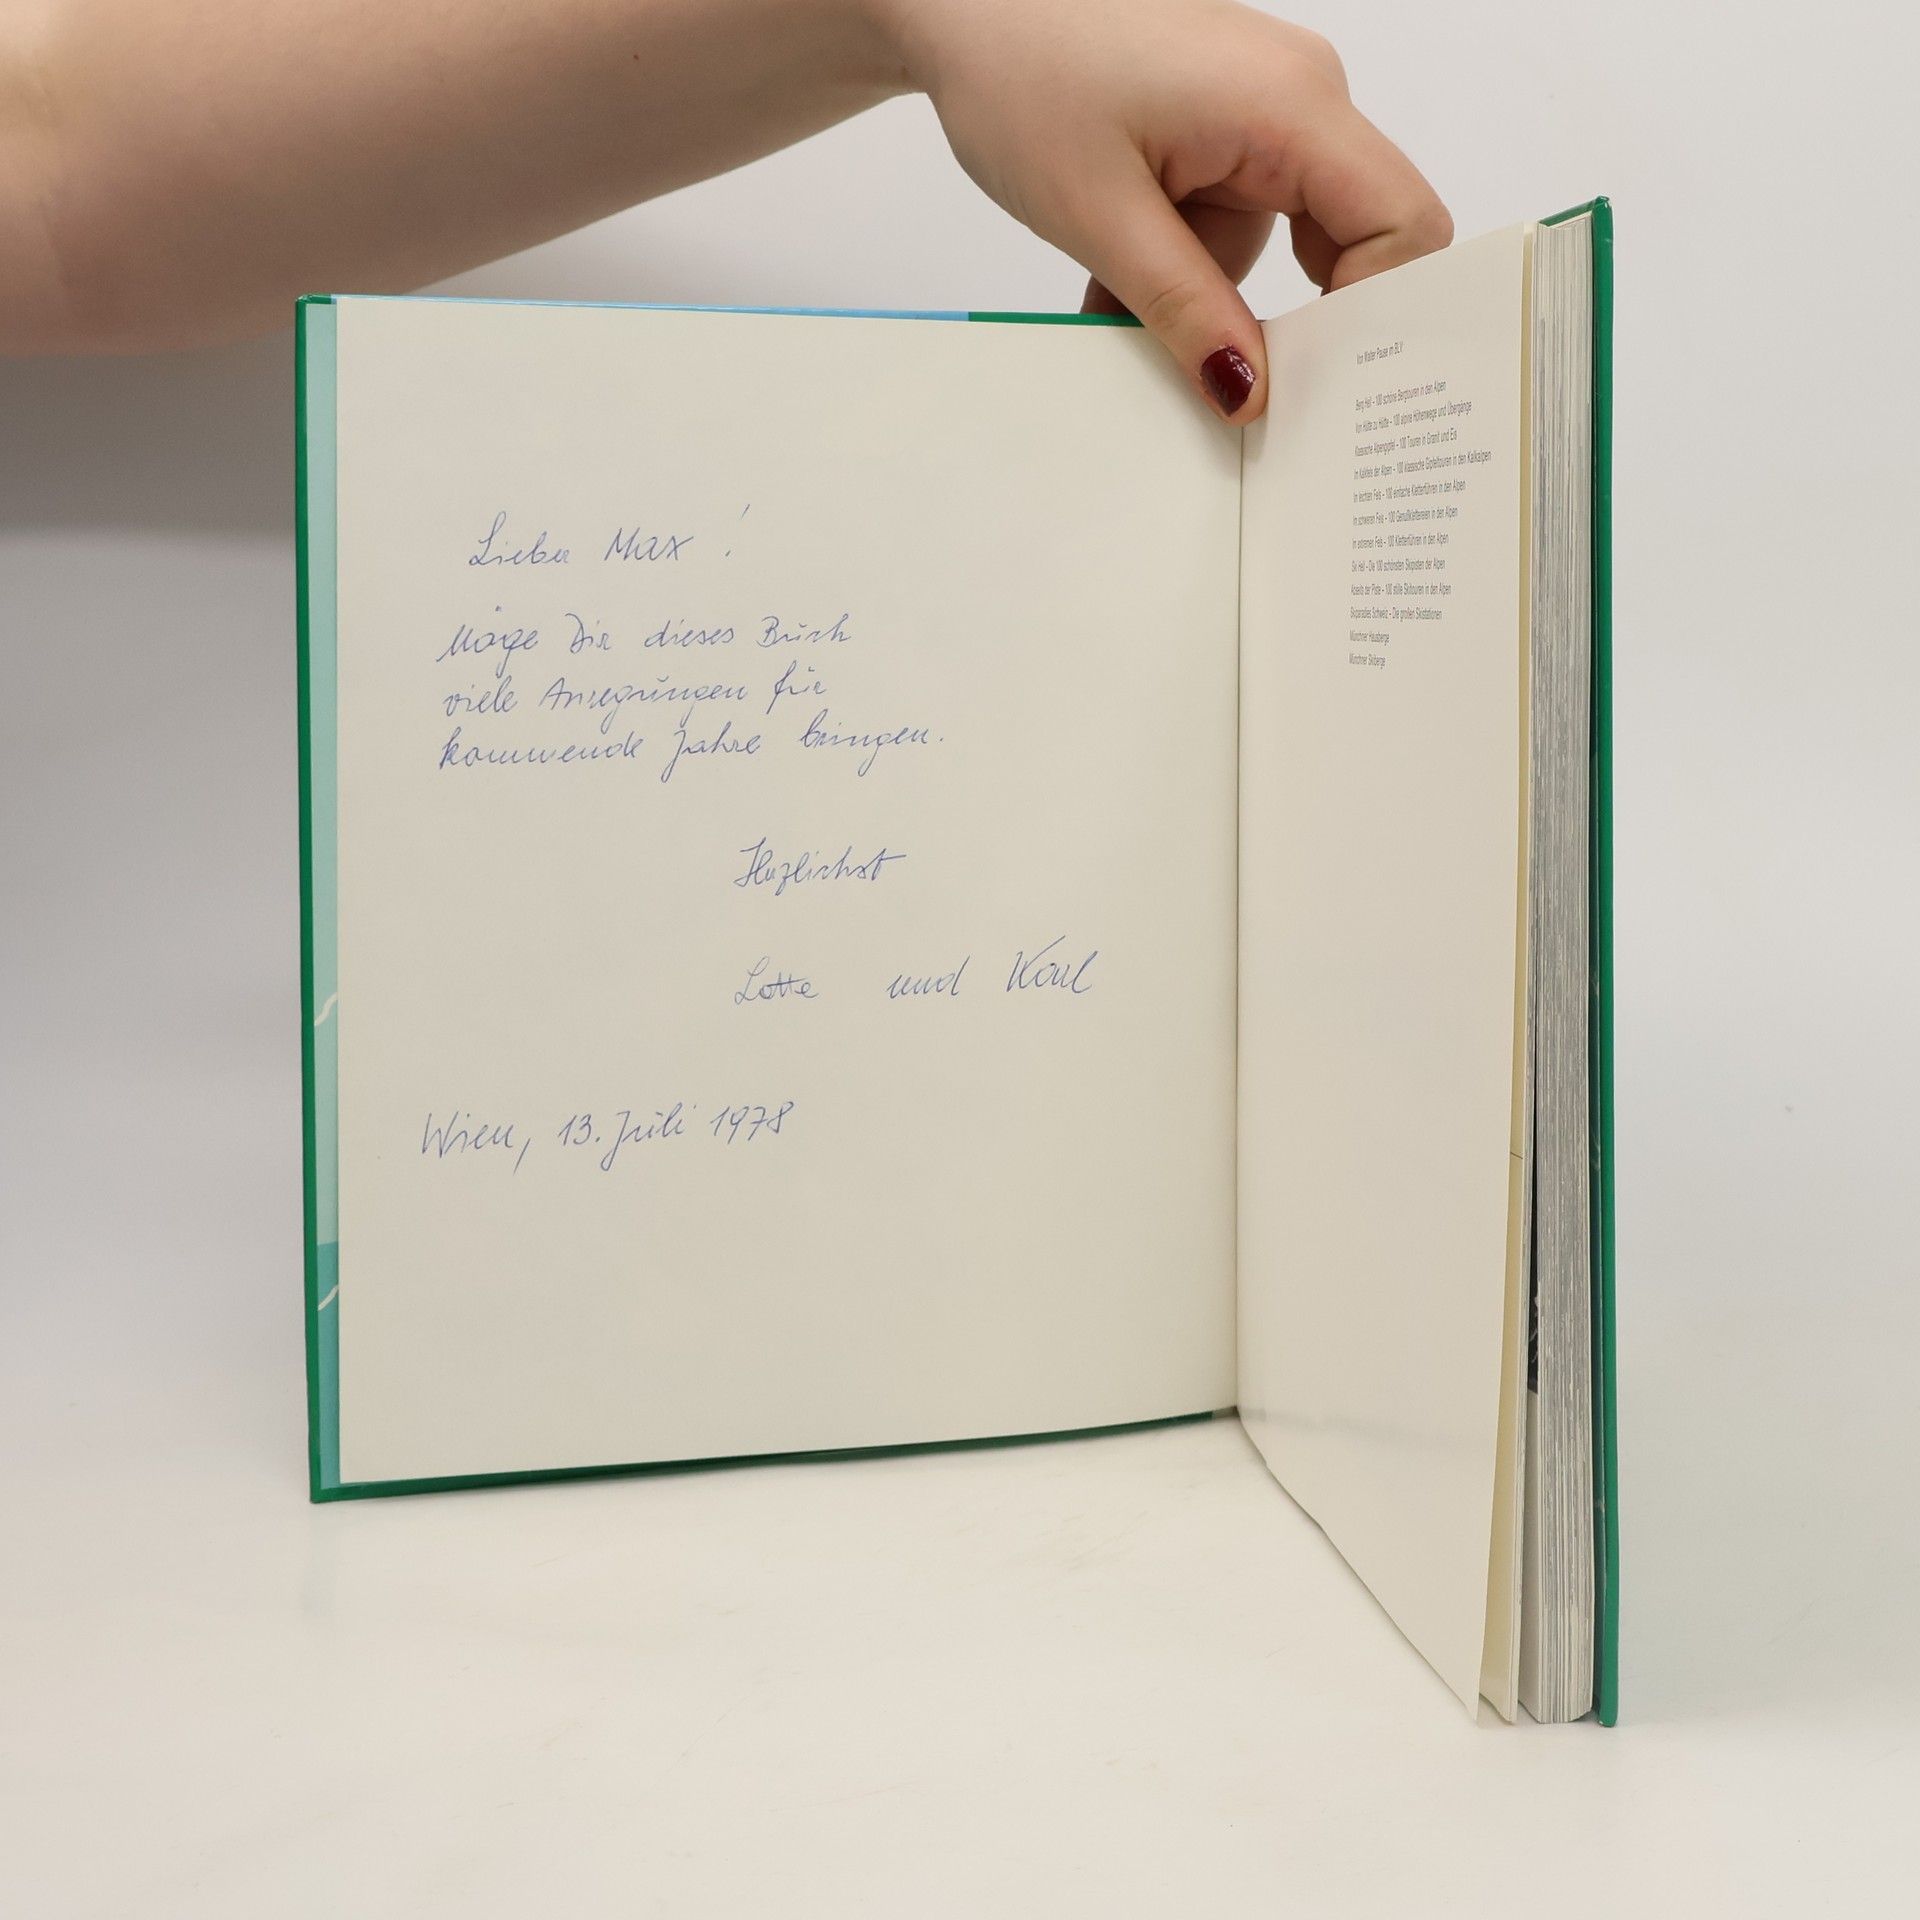 Lieber Max!
Möge Dir dieses Buch
viele Anregungen für
kommende Jahre bringen.
Herzlichst
Lotte und Karl
Wien, 13. Juli 1978
Von Walter Pause im BLV:
Berg Heil – 100 schöne Bergtouren in den Alpen
Von Hütte zu Hütte – 100 alpine Höhenwege und Übergänge
Klassische Alpengipfel – 100 Touren in Granit und Eis
Im Kalkfels der Alpen – 100 klassische Gipfeltouren in den Kalkalpen
Im leichten Fels – 100 einfache Kletterführen in den Alpen
Im schweren Fels – 100 Genußklettereien in den Alpen
Im extremen Fels – 100 Kletterführen in den Alpen
Ski Heil – Die 100 schönsten Skipisten der Alpen
Abseits der Piste – 100 stille Skitouren in den Alpen
Skiparadies Schweiz – Die großen Skistationen
Münchner Hausberge
Münchner Skiberge